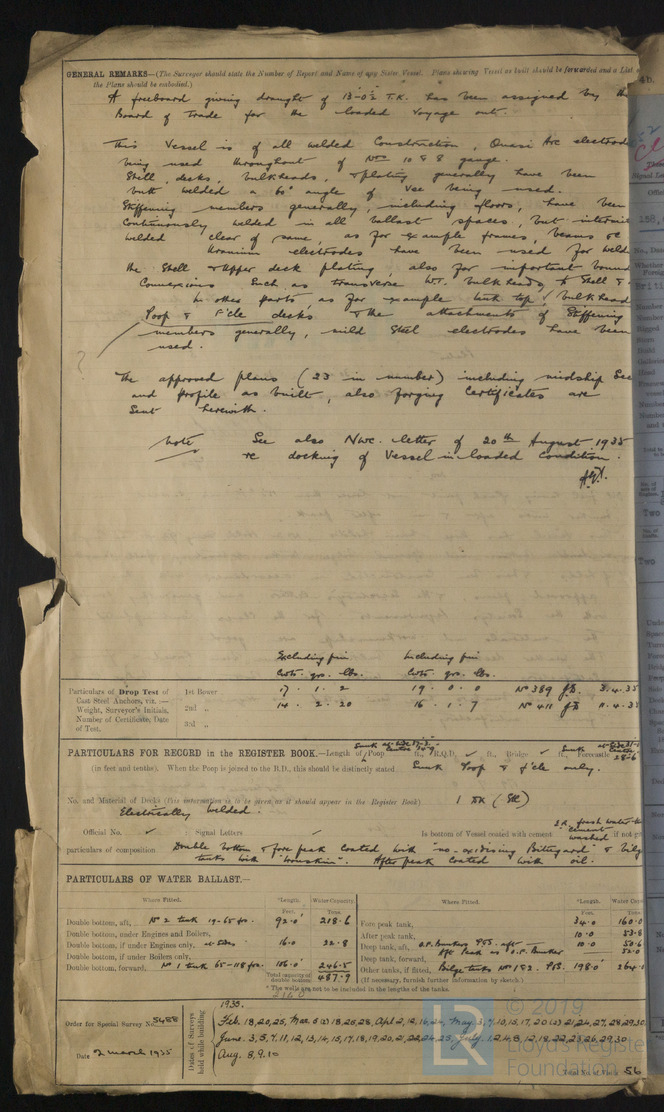 GENERAL REMARKS—(The Surveyor should state the Number of Report and Name of any Sister Vessel. Plans showing Vessel as built should be forwarded and a List
the Plans should be embodied.)
A freeboard giving draught of 13'-0½ T.K. has been assigned by the
Board of Trade for the loaded Voyage out.
This Vessel is of all welded Construction, Quasi Arc electrode
being used throughout of Nos 10 & 8 gauge.
Shell, decks, bulkheads, & plating generally have been
butt welded a 60° angle of Vee being used.
Stiffening members generally, including floors, have been
Continuously welded in all ballast spaces, but
welded clear of same, as for example frames, beams &c
Uranium electrodes have been used for weld
the Shell & Upper deck plating, also for important
Connexions Such as transverse W.T. bulkheads to Shell &
In other parts, as for example tank top, bulkhead
Poop & F'cle decks & the attachments of Stiffening
members generally, mild Steel electrodes have been
used.
The approved plans (23 in number) including midship Sec
and profile as built, also forging Certificates are
Sent herewith.
Note See also Nwc. letter of 20th August 1935
re docking of Vessel in loaded Condition.
Excluding pin Including pin
Cwts. qrs. lbs. Cwts. qrs. lbs.
Particulars of Drop Test of
Cast Steel Anchors, viz.:—
Weight, Surveyor's Initials,
Number of Certificate, Date
of Test.
1st Bower 17 . 1 . 2 19 . 0 . 0 No 389 3.4.35
2nd „ 14 . 2 . 20 16 . 1 . 7 No 411 11.4.3
3rd „
PARTICULARS FOR RECORD in the REGISTER BOOK.—Length of Poop ft., R.Q.D. ✓ ft., Bridge ✓ ft., Forecastle 28-6
(in feet and tenths). When the Poop is joined to the B.D., this should be distinctly stated Sunk Poop & f'cle only.
No. and Material of Decks (this information is to be given as it should appear in the Register Book) 1 Dk (Stl)
Electrically Welded.
Official No. ✓ Signal Letters ✓ Is bottom of Vessel coated with cement if not gi
particulars of composition Double bottom & fore peak Coated with "no-oxidising Bittugard" &
tanks with After peak Coated with oil.
PARTICULARS OF WATER BALLAST.—
Where Fitted. *Length. Water Capacity. Where Fitted. *Length. Water Cap
Feet. Tons. Feet. Tons.
Double bottom, aft, No 2 tank 19-65 frs. 92.0 218.6
Double bottom, under Engines and Boilers,
Double bottom, if under Engines only, 16.0 22.8
Double bottom, if under Boilers only,
Double bottom, forward, No 1 tank 65-118 frs. 106.0 246.5
Total capacity of double bottom 487.9
Fore peak tank, 34.0 160.0
After peak tank, 10.0 53.8
Deep tank, aft, 10.0 50.6
Deep tank, forward, 52.0
Other tanks, if fitted, Bilge tanks No 1 & 2 P&S. 198.0 264.
(If necessary, furnish further information by sketch.)
* The wells are not to be included in the lengths of the tanks.
Order for Special Survey No. 5488
Date 2 march 1935
Dates of Surveys held while building
1935.
Feb. 18,20,25, Mar. 5 18,26,28, Apl 2,12,16,24, May 3,7,10,15,17,20 (2) 21,24,27,28,29,30,
June. 3,5,7,11,12,13,14,15,17,18,19,20,21,22,24,25, July. 1,2,4,8,12,18,22,23,26,29,30
Aug. 8,9,10
Total No. of Visits 56
© 2019
LR
Lloyd's Register
Foundation